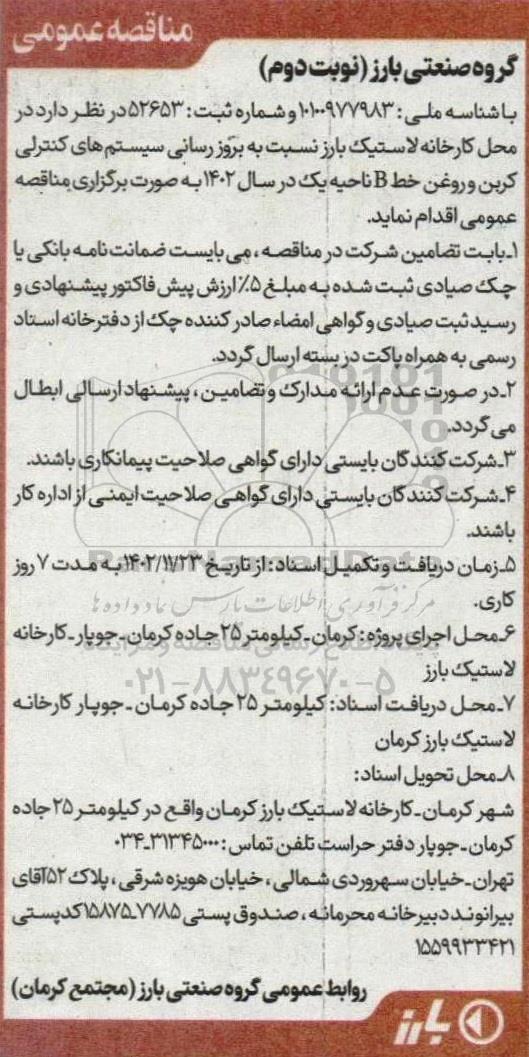 مناقصه عمومی
گروه صنعتی بارز (نوبت دوم)
با شناسه ملی: ۱۰۱۰۰۹۷۷۹۸۳ و شماره ثبت: ۵۲۶۵۳ در نظر دارد در
محل کارخانه لاستیک بارز نسبت به بروز رسانی سیستم های کنترلی
کربن و روغن خط B ناحیه یک در سال ۱۴۰۲ به صورت برگزاری مناقصه
عمومی اقدام نماید.
۱ـ بابت تضامین شرکت در مناقصه، می بایست ضمانت نامه بانکی یا
چک صیادی ثبت شده به مبلغ ۵٪ ارزش پیش فاکتور پیشنهادی و
رسید ثبت صیادی و گواهی امضاء صادر کننده چک از دفترخانه اسناد
رسمی به همراه پاکت در بسته ارسال گردد.
۲ـ در صورت عدم ارائه مدارک و تضامین، پیشنهاد ارسالی ابطال
می گردد.
۳ـ شرکت کنندگان بایستی دارای گواهی صلاحیت پیمانکاری باشند.
۴ـ شرکت کنندگان بایستی دارای گواهی صلاحیت ایمنی از اداره کار
باشند.
۵ـ زمان دریافت و تکمیل اسناد: از تاریخ ۱۴۰۲/۱۱/۲۳ به مدت ۷ روز
کاری.
۶ـ محل اجرای پروژه: کرمان ـ کیلومتر ۲۵ جاده کرمان ـ جوپار ـ کارخانه
لاستیک بارز
۷ـ محل دریافت اسناد: کیلومتر ۲۵ جاده کرمان ـ جوپار کارخانه
لاستیک بارز کرمان
۸ـ محل تحویل اسناد:
شهر کرمان ـ کارخانه لاستیک بارز کرمان واقع در کیلومتر ۲۵ جاده
کرمان ـ جوپار دفتر حراست تلفن تماس: ۳۱۳۴۵۰۰۰ـ۰۳۴
تهران ـ خیابان سهروردی شمالی، خیابان هویزه شرقی، پلاک ۵۲ آقای
بیرانوند دبیرخانه محرمانه، صندوق پستی ۷۷۸۵ـ۱۵۸۷۵ کدپستی
۱۵۵۹۹۳۳۴۲۱
روابط عمومی گروه صنعتی بارز (مجتمع کرمان)
بارز
مرکز فرآوری اطلاعات پارس نماد داده ها
۰۲۱-۸۸۳۴۹۶۷۰-۵